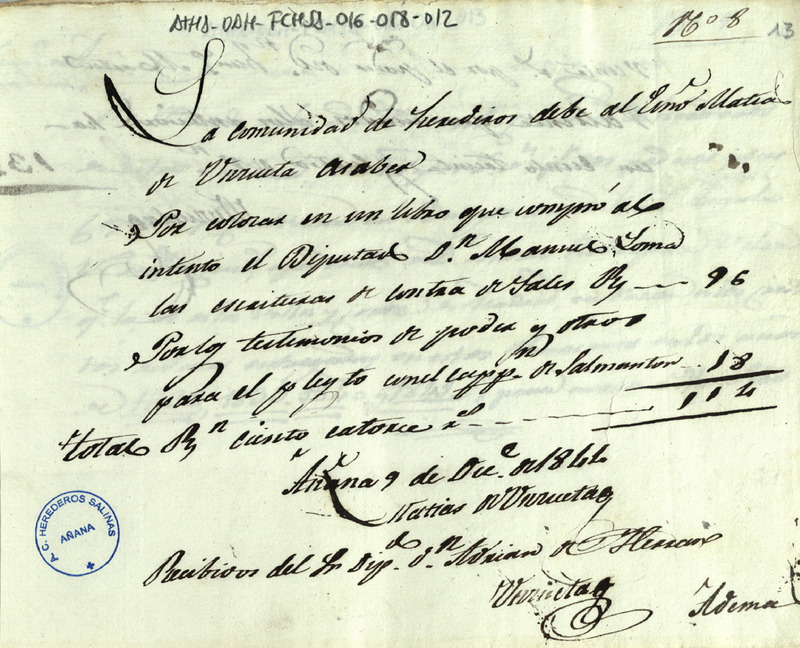 ATHA-DAH-FCHSA-016-018-012
Nº 8
13
La comunidad de herederos debe al Esno Matias
de Urrueta a saber
Por colocar en un libro que compró al
intento el Diputado Dn Manuel Loma
las escrituras de contra de Sales Rs — 96
Por los testimonios de poder y otros
para el pleyto con el capp.n de Salmanton 18
total Rn ciento catorce rs 114
Añana 9 de Dice de 1844
Matias de Urrueta
Recibidos del Sr Dipdo Dn Adrian de Herran
Urrueta
A.C. HEREDEROS SALINAS
AÑANA